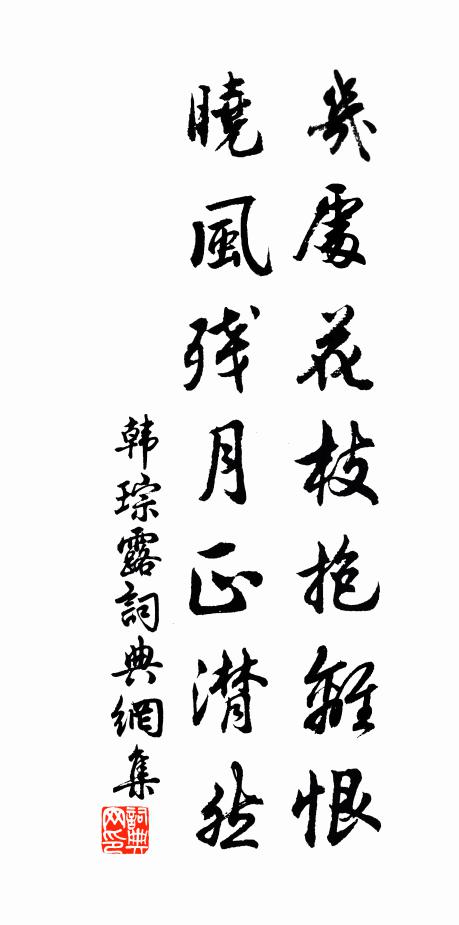 幾處花枝抱離恨
曉風殘月正潸然
韩琮露詞典網集
詞典网印